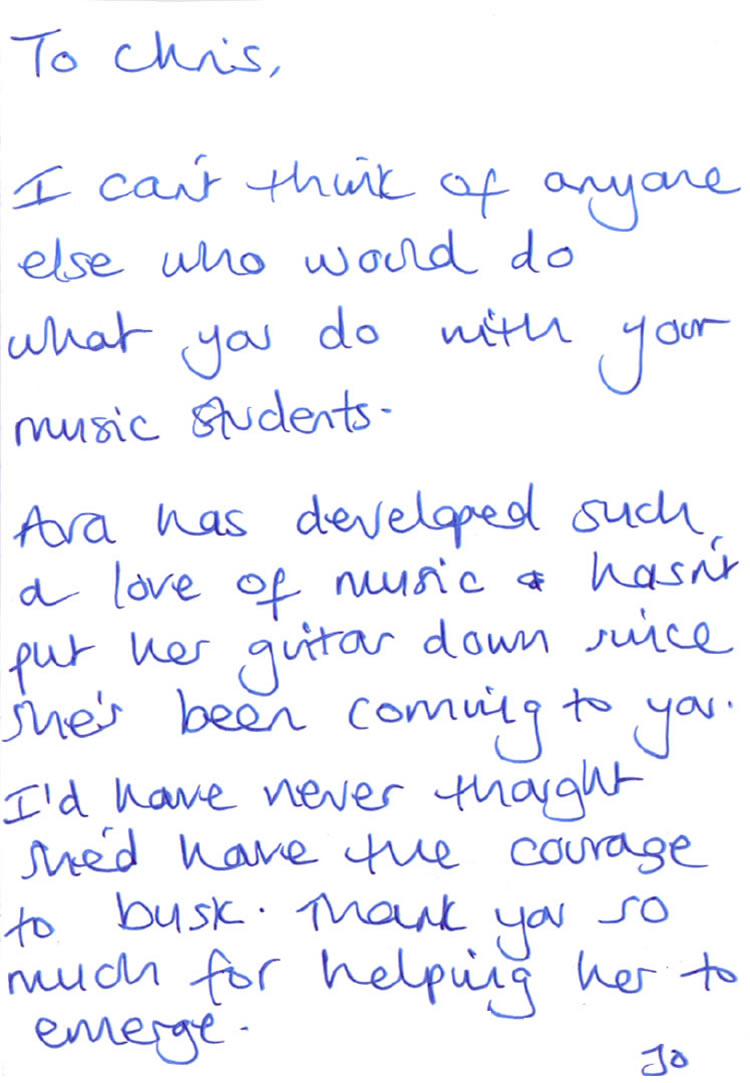 To Chris,
I can't think of anyone
else who would do
what you do with your
music students.
Ava has developed such
a love of music & hasn't
put her guitar down since
she's been coming to you.
I'd have never thought
she'd have the courage
to busk. Thank you so
much for helping her to
emerge.
Jo